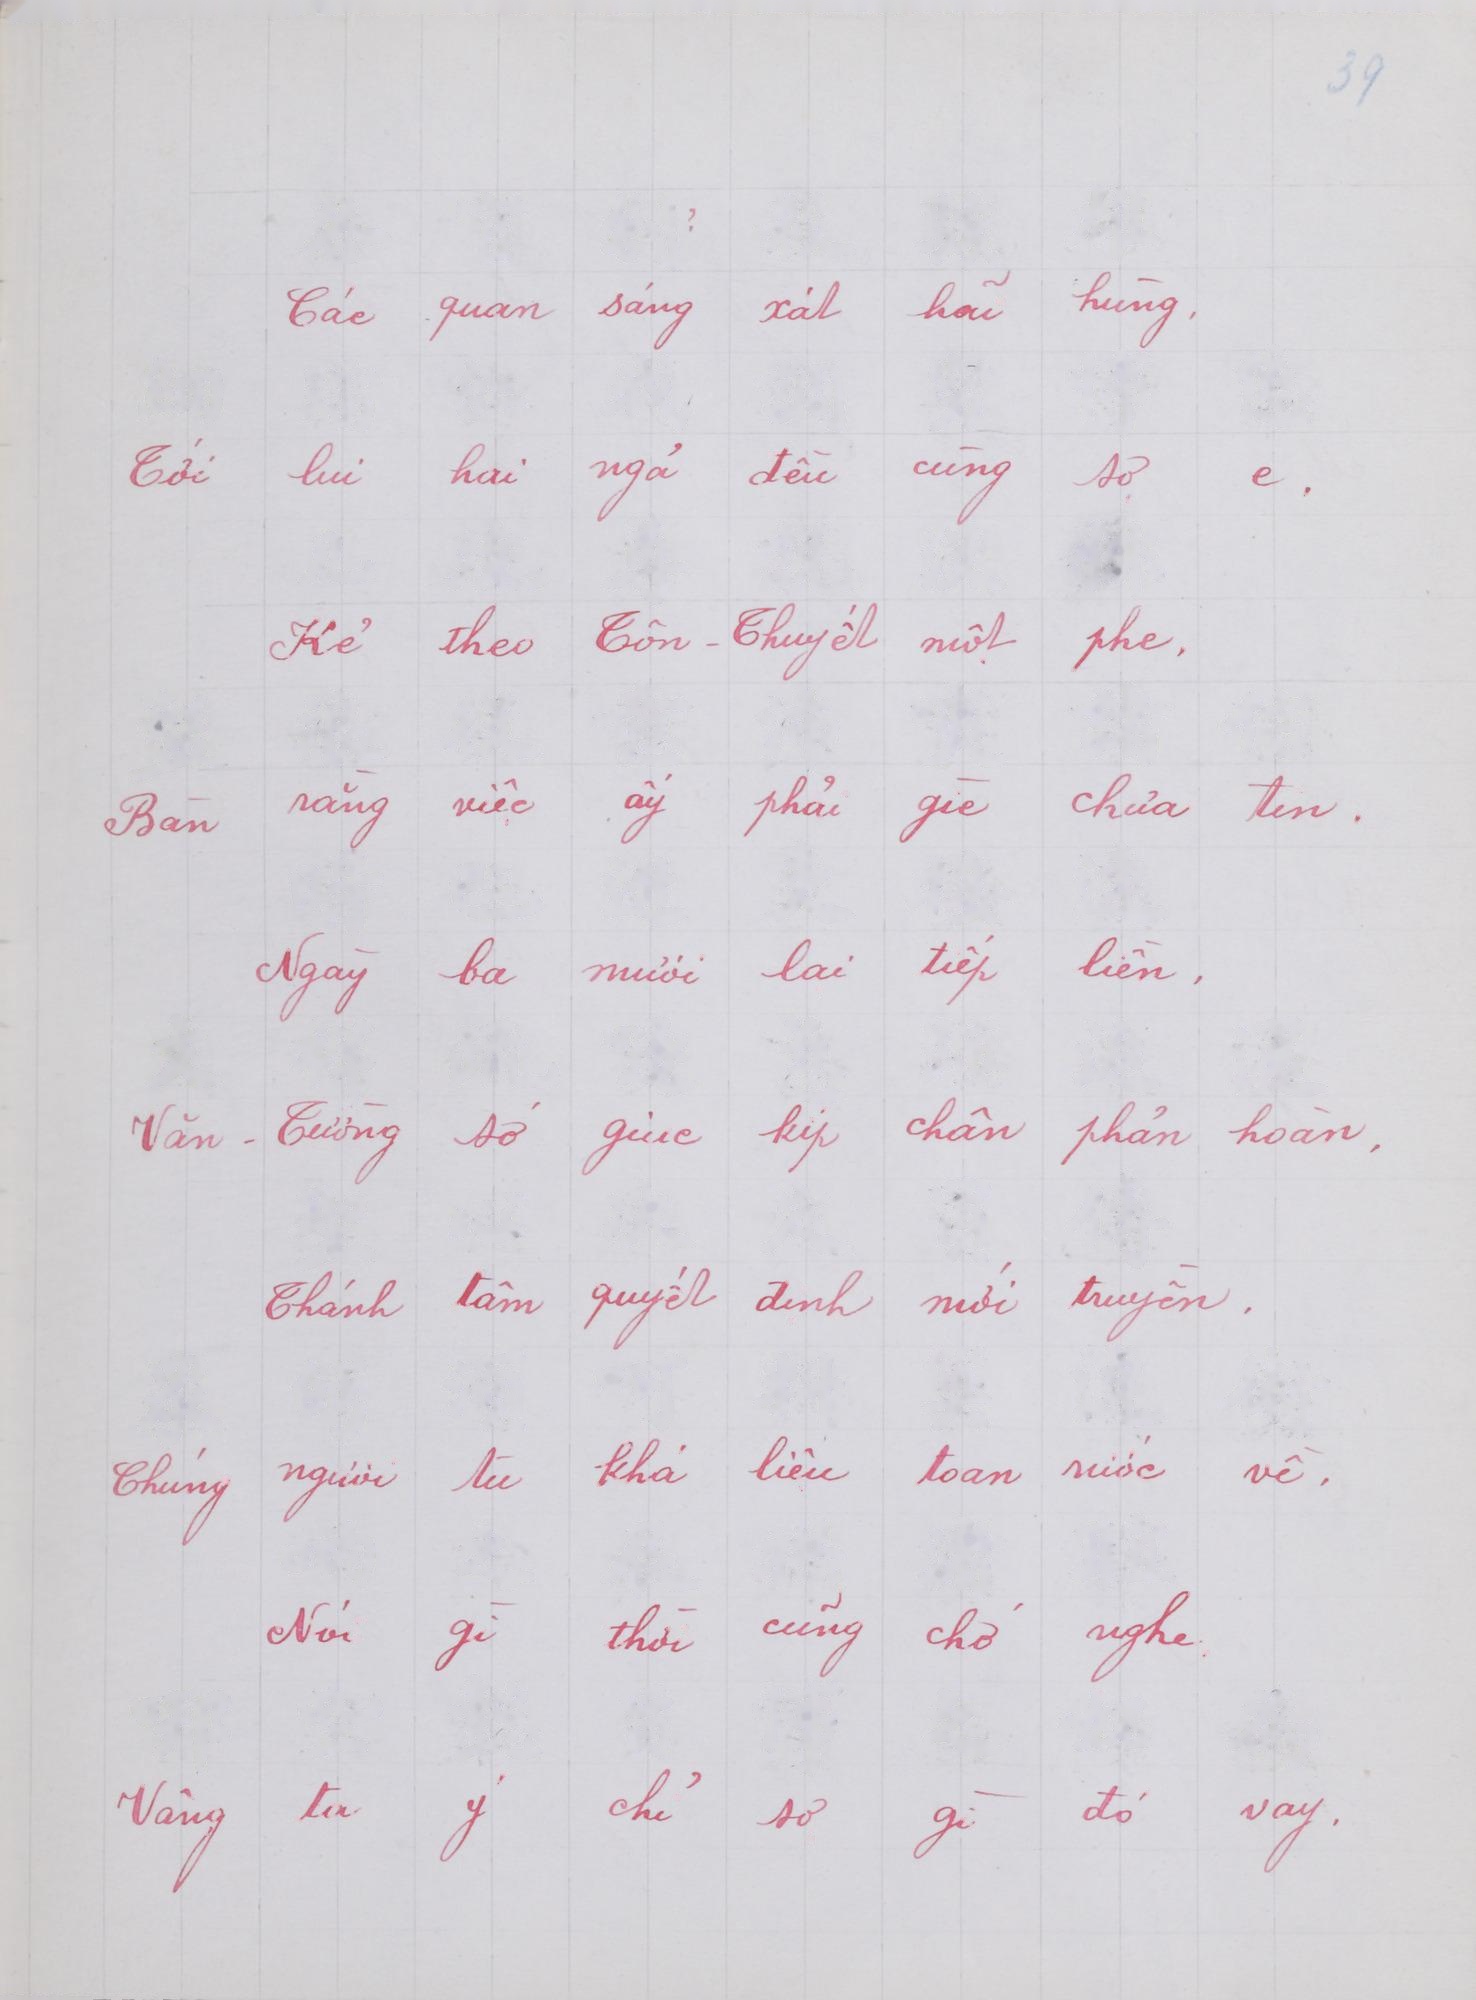 39
?
Các quan sáng xát hãi hùng.
Tới lui hai ngả đều cùng sợ e.
Kẻ theo Tôn-Thuyết một phe.
Bàn rằng việc ấy phải gìè chưa tin.
Ngày ba mươi lại tiếp liền.
Văn-Tường sớ giục kíp chân phản hoàn.
Thánh tâm quyết định mới truyền.
Chúng ngươi tu khá liệu toan rước về.
Nói gì thời cũng chớ nghe.
Vâng từ ý chỉ sợ gì đó vay.